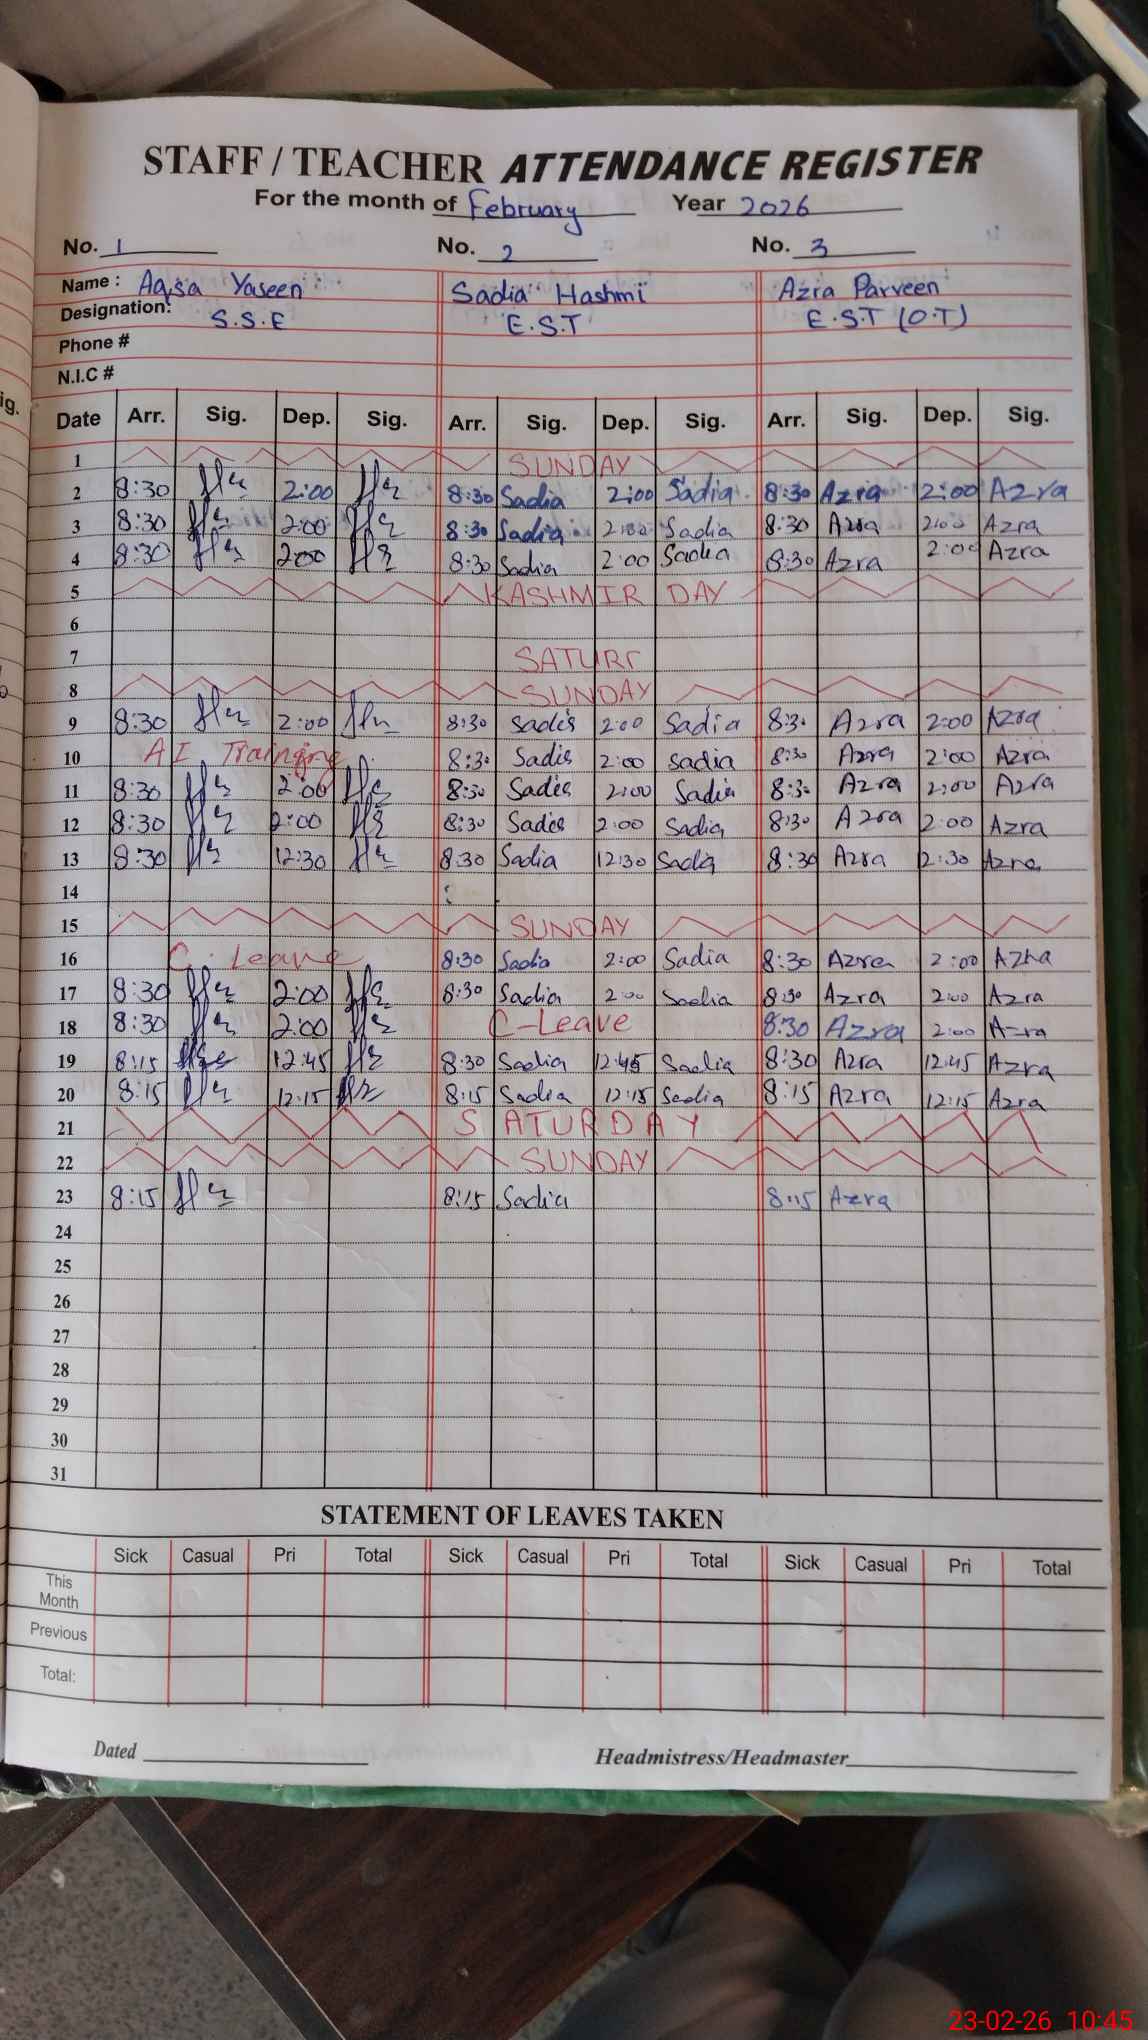 STAFF / TEACHER ATTENDANCE REGISTER
For the month of February Year 2026
No. 1 No. 2 No. 3
Name : Aqsa Yaseen Sadia Hashmi Azra Parveen
Designation: S.S.E E.S.T E.S.T (O.T)
Phone #
N.I.C #
Date Arr. Sig. Dep. Sig. Arr. Sig. Dep. Sig. Arr. Sig. Dep. Sig.
1 SUNDAY
2 8:30 2:00 8:30 Sadia 2:00 Sadia 8:30 Azra 2:00 Azra
3 8:30 2:00 8:30 Sadia 2:00 Sadia 8:30 Azra 2:00 Azra
4 8:30 2:00 8:30 Sadia 2:00 Sadia 8:30 Azra 2:00 Azra
5 KASHMIR DAY
6
7 SATUR
8 SUNDAY
9 8:30 2:00 8:30 Sadia 2:00 Sadia 8:30 Azra 2:00 Azra
10 AI 8:30 Sadia 2:00 Sadia 8:30 Azra 2:00 Azra
11 8:30 2:00 8:30 Sadia 2:00 Sadia 8:30 Azra 2:00 Azra
12 8:30 2:00 8:30 Sadia 2:00 Sadia 8:30 Azra 2:00 Azra
13 8:30 12:30 8:30 Sadia 12:30 Sadia 8:30 Azra 2:30 Azra
14
15 SUNDAY
16 C. Leave 8:30 Sadia 2:00 Sadia 8:30 Azra 2:00 Azra
17 8:30 2:00 8:30 Sadia 2:00 Sadia 8:30 Azra 2:00 Azra
18 8:30 2:00 C-Leave 8:30 Azra 2:00 Azra
19 8:15 12:45 8:30 Sadia 12:45 Sadia 8:30 Azra 12:45 Azra
20 8:15 12:15 8:15 Sadia 12:15 Sadia 8:15 Azra 12:15 Azra
21 SATURDAY
22 SUNDAY
23 8:15 8:15 Sadia 8:15 Azra
24
25
26
27
28
29
30
31
STATEMENT OF LEAVES TAKEN
Sick Casual Pri Total Sick Casual Pri Total Sick Casual Pri Total
This Month
Previous
Total:
Dated Headmistress/Headmaster
23-02-26 10:45